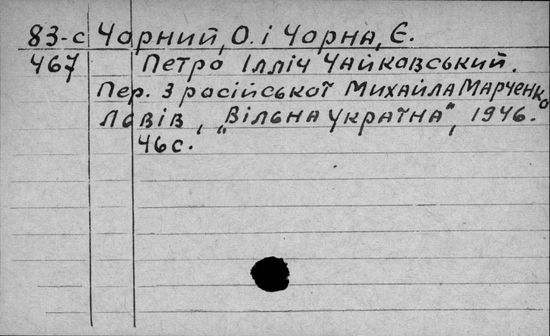 83-с Чорний, О. і Чорна, Є.
467 Петро Ілліч Чайковський.
Пер. з російської Михайла Марченко
Львів, „Вільна Україна", 1946.
46 с.